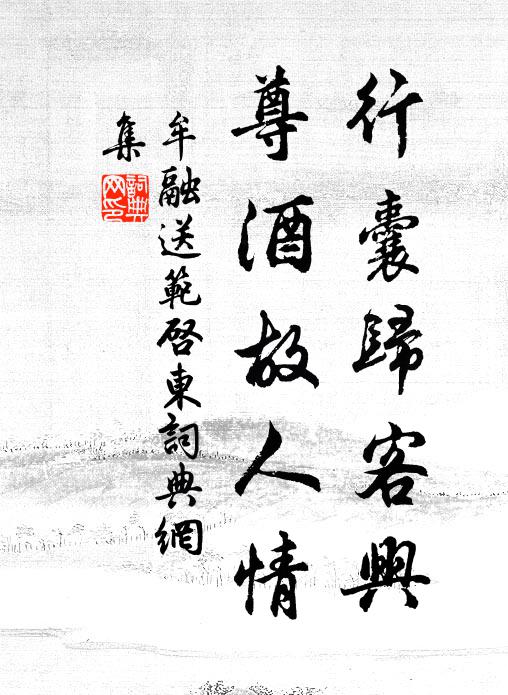 行囊歸客興
尊酒故人情
牟融送範啓東詞典網
集
詞典網印